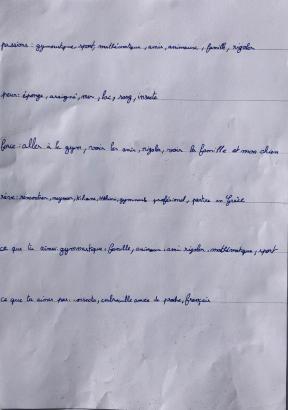 passions : gymnastique, sport, mathématique, amis, animaux, famille, rigoler
peur : éponge, araigné, mer, lac, sang, insecte
force : aller à la gym, voir les amis, rigoler, voir la famille et mon chien
rêve : rencontrer, gymnaste profésionel, partire en Grèce
ce que tu aimes : gymnastique, famille, animaux, ami rigoler, mathématique, sport
ce que tu aimes pas : insecte, de proche, français